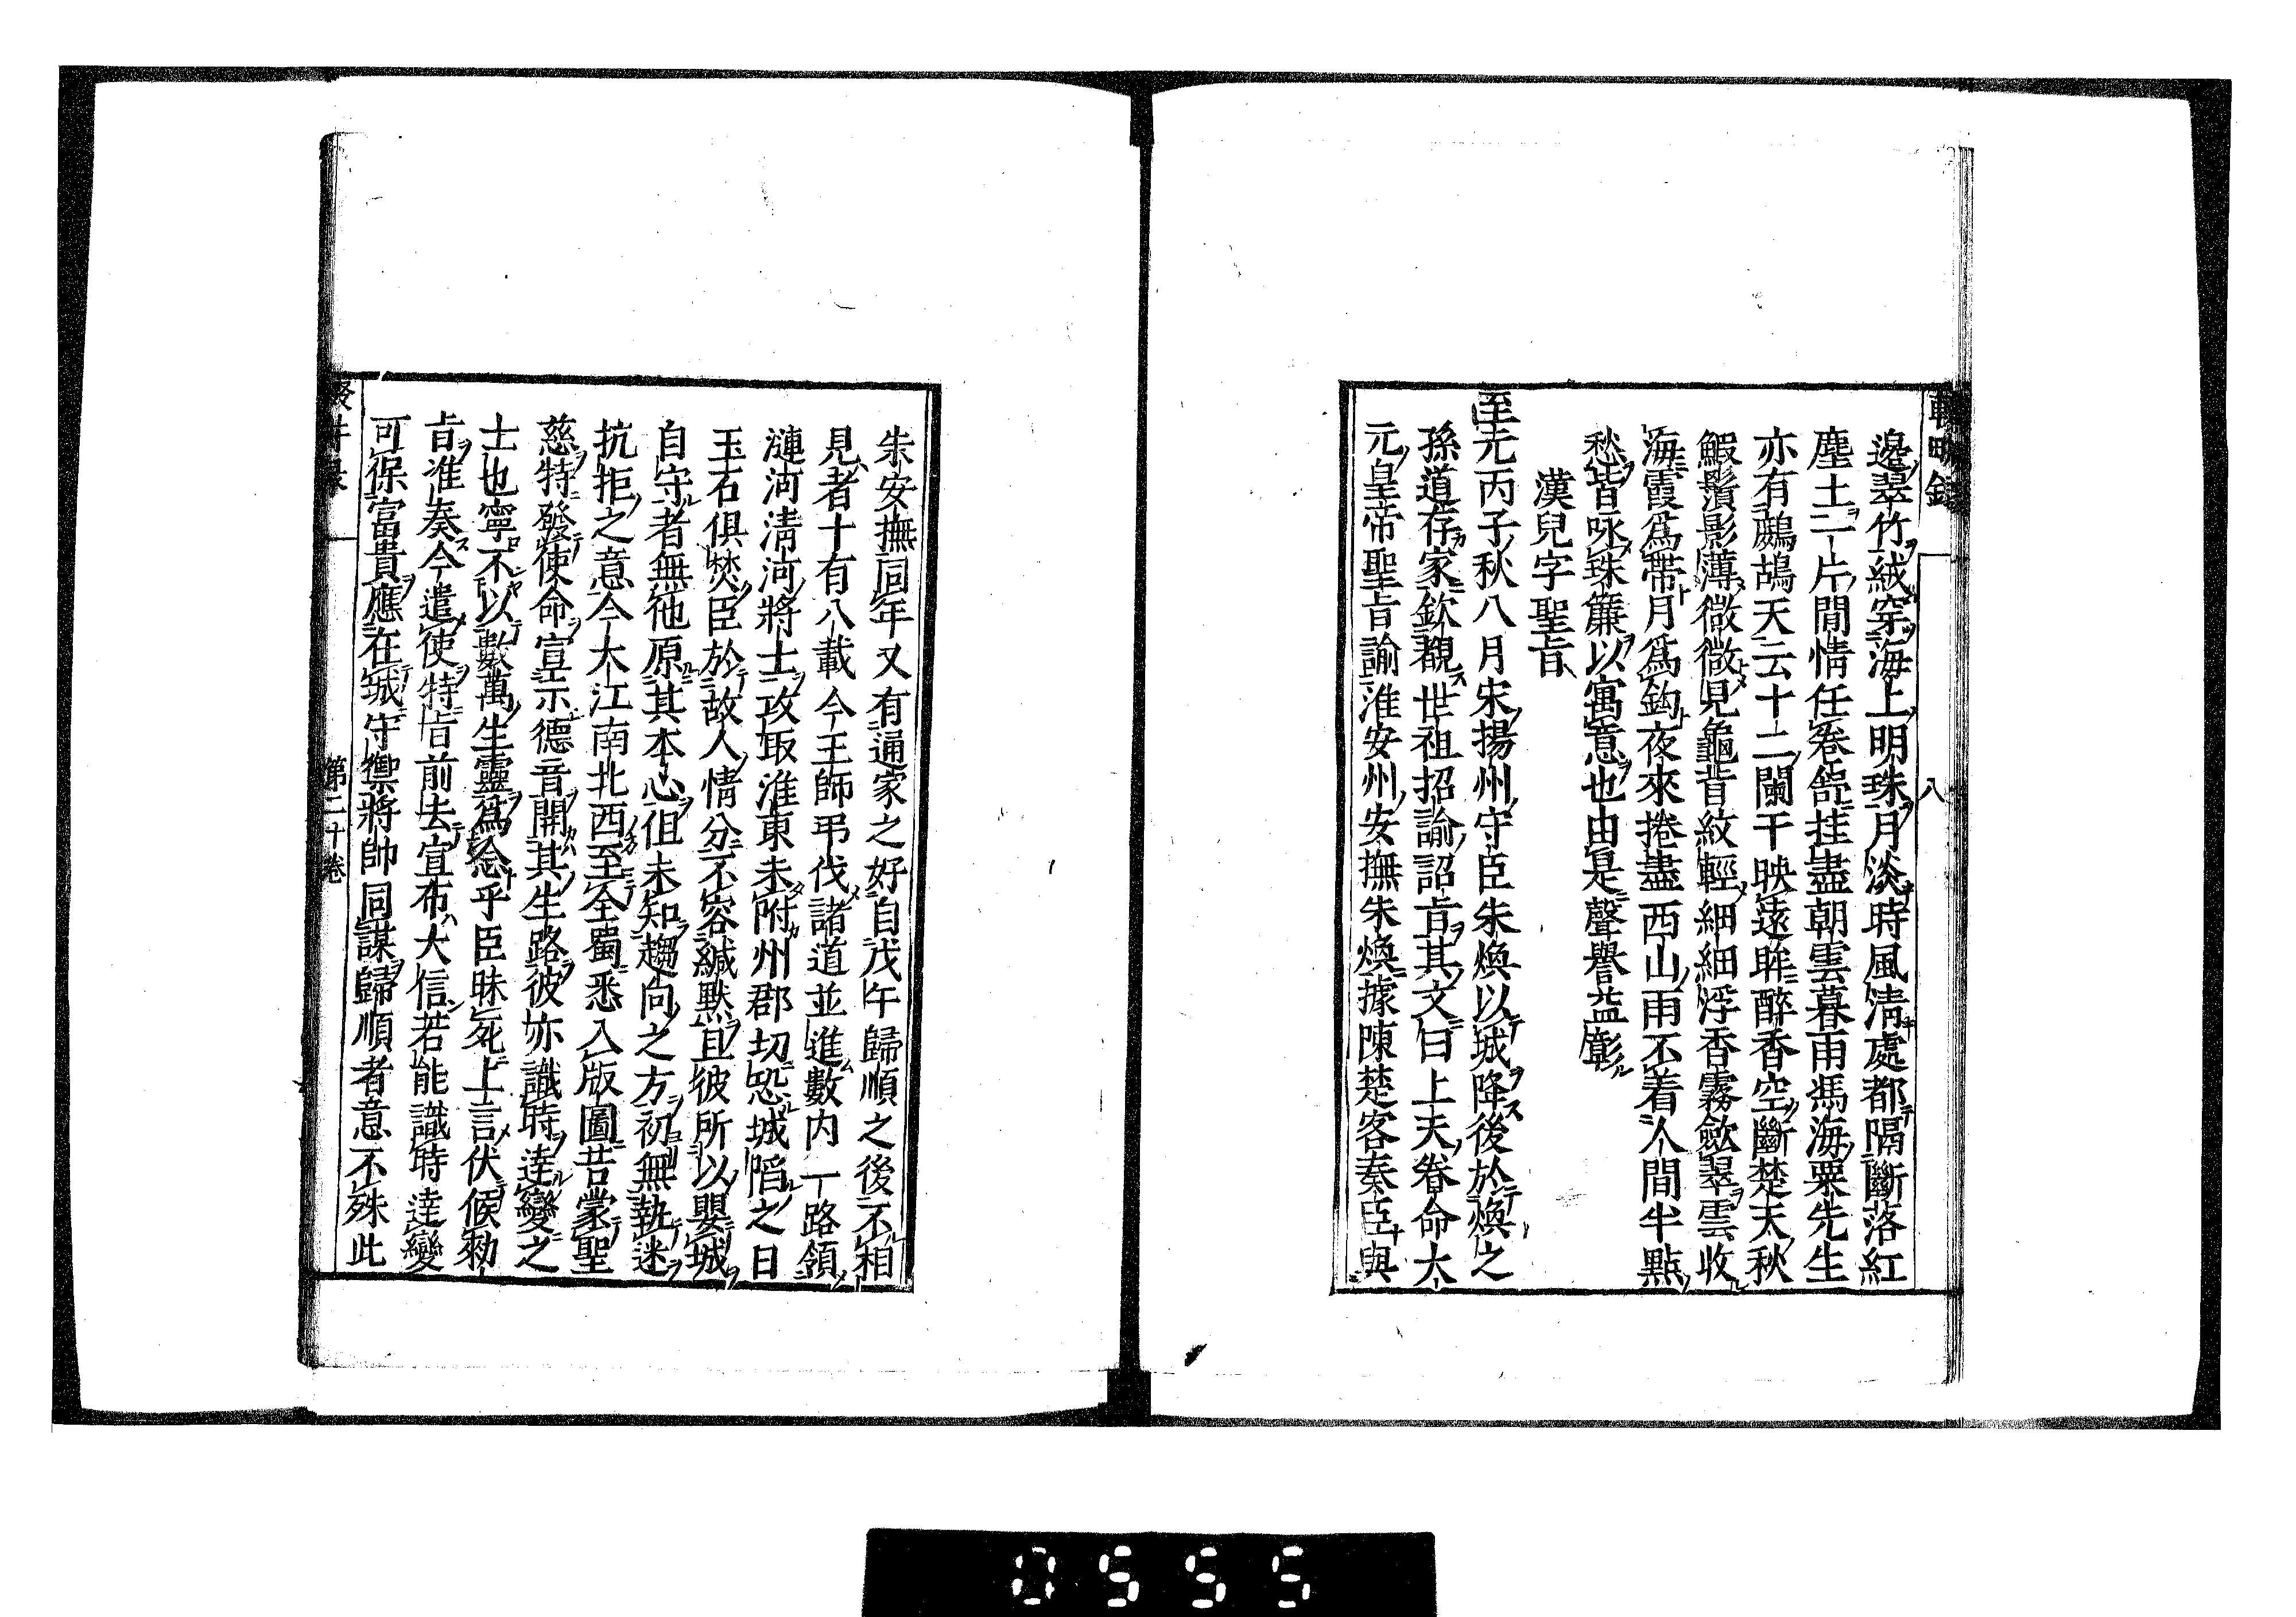 輟畊録
八
邊翠竹絨穿海上明珠月淡時風淸處都隔斷落紅
塵土一片閒情任卷舒挂盡朝雲暮雨馮海粟先生
亦有鷓鴣天云十二闌干映遠眸醉香空斷楚天秋
鰕鬚影薄微微見龜背紋輕細細浮香霧歛翠雲收
海霞爲帶月爲鈎夜來捲盡西山雨不着人間半點
愁皆咏珠簾以寓意也由是聲譽益彰
漢兒字聖旨
至元丙子秋八月宋揚州守臣朱煥以城降後於煥之
孫道存家欽覩世祖招諭詔旨其文曰上天眷命大
元皇帝聖旨諭淮安州安撫朱煥據陳楚客奏臣與
朱安撫同年又有通家之好自戊午歸順之後不相
見者十有八載今王師弔伐諸道並進數内一路領
漣河淸河將士攻取淮東未附州郡切恐城陷之日
玉石俱焚臣於故人情分不容緘默且彼所以嬰城
自守者無他原其本心徂未知趨向之方初無執迷
抗拒之意今大江南北西至全蜀悉入版圖苔蒙聖
慈特發使命宣示德音開其生路彼亦識時達變之
士也寧不以數萬生靈爲念乎臣昧死上言伏候勅
旨准奏今遣使特旨前去宣布大信若能識時達變
可保富貴應在城守禦將帥同謀歸順者意不殊此
第二十卷